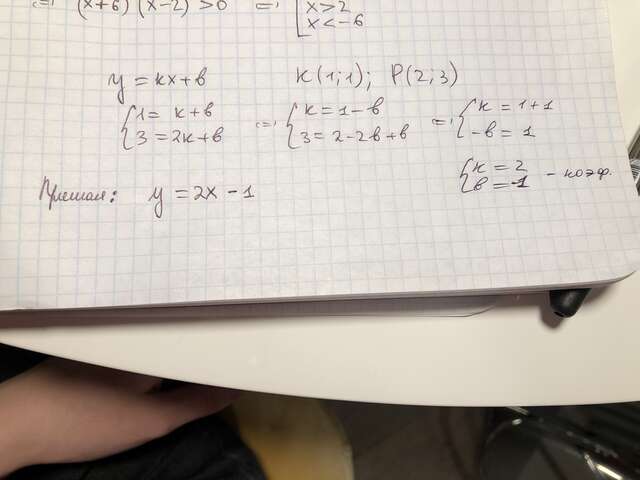 => (x+6)(x-2)>0 => [x>2
x<-6
y = kx+b K(1;1); P(2;3)
{1= k+b => {k=1-b => {k=1+1
3=2k+b 3=2-2b+b -b=1
{k=2
b=-1 - коэф.
Прямая: y=2x-1